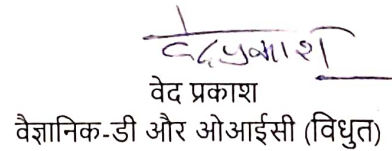 वेदप्रकाश
वेद प्रकाश
वैज्ञानिक-डी और ओआईसी (विधुत)